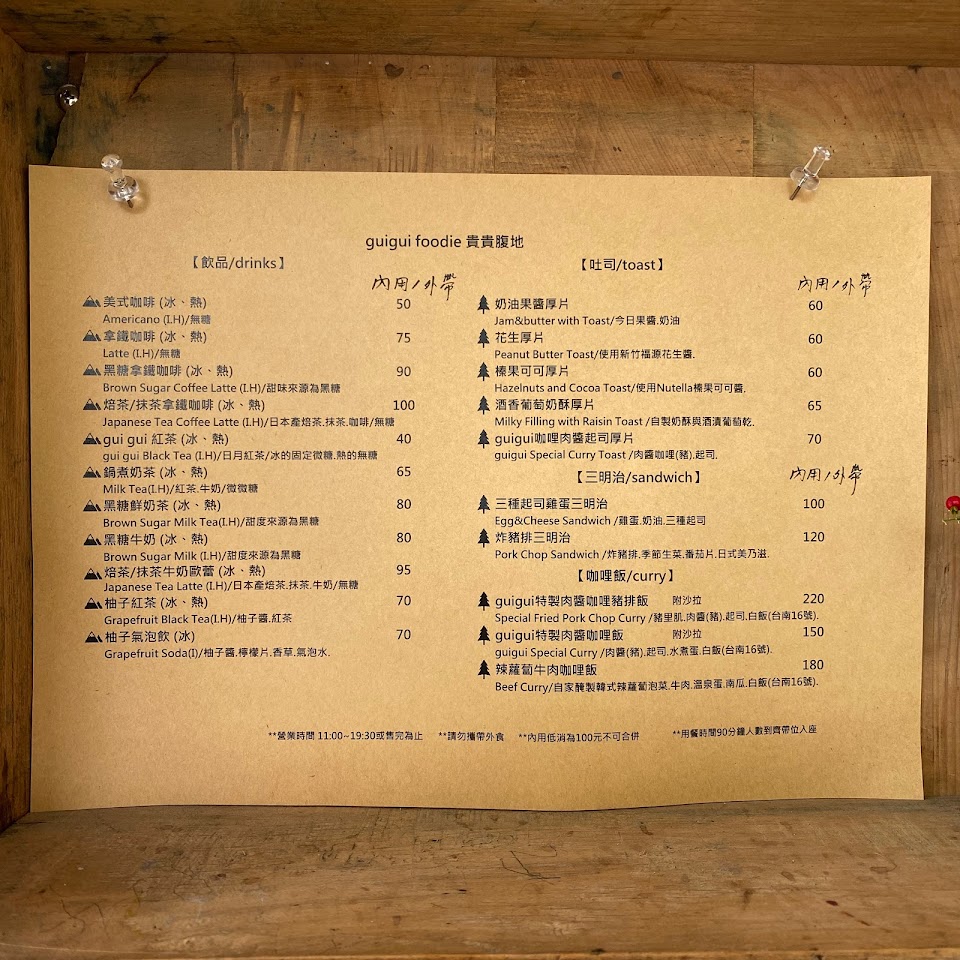 guigui foodie 貴貴腹地
【飲品/drinks】
內用/外帶
美式咖啡 (冰、熱) 50
Americano (I.H)/無糖
拿鐵咖啡 (冰、熱) 75
Latte (I.H)/無糖
黑糖拿鐵咖啡 (冰、熱) 90
Brown Sugar Coffee Latte (I.H)/甜味來源為黑糖
焙茶/抹茶拿鐵咖啡 (冰、熱) 100
Japanese Tea Coffee Latte (I.H)/日本產焙茶.抹茶.咖啡/無糖
gui gui 紅茶 (冰、熱) 40
gui gui Black Tea (I.H)/日月紅茶/冰的固定微糖.熱的無糖
鍋煮奶茶 (冰、熱) 65
Milk Tea(I.H)/紅茶.牛奶/微微糖
黑糖鮮奶茶 (冰、熱) 80
Brown Sugar Milk Tea(I.H)/甜度來源為黑糖
黑糖牛奶 (冰、熱) 80
Brown Sugar Milk (I.H)/甜度來源為黑糖
焙茶/抹茶牛奶歐蕾 (冰、熱) 95
Japanese Tea Latte (I.H)/日本產焙茶.抹茶.牛奶/無糖
柚子紅茶 (冰、熱) 70
Grapefruit Black Tea(I.H)/柚子醬.紅茶
柚子氣泡飲 (冰) 70
Grapefruit Soda(I)/柚子醬.檸檬片.香草.氣泡水.
【吐司/toast】
內用/外帶
奶油果醬厚片 60
Jam&butter with Toast/今日果醬.奶油
花生厚片 60
Peanut Butter Toast/使用新竹福源花生醬.
榛果可可厚片 60
Hazelnuts and Cocoa Toast/使用Nutella榛果可可醬.
酒香葡萄奶酥厚片 65
Milky Filling with Raisin Toast /自製奶酥與酒漬葡萄乾.
guigui咖哩肉醬起司厚片 70
guigui Special Curry Toast /肉醬咖哩(豬).起司.
【三明治/sandwich】
內用/外帶
三種起司雞蛋三明治 100
Egg&Cheese Sandwich /雞蛋.奶油.三種起司
炸豬排三明治 120
Pork Chop Sandwich /炸豬排.季節生菜.番茄片.日式美乃滋.
【咖哩飯/curry】
guigui特製肉醬咖哩豬排飯 附沙拉 220
Special Fried Pork Chop Curry /豬里肌.肉醬(豬).起司.白飯(台南16號).
guigui特製肉醬咖哩飯 附沙拉 150
guigui Special Curry /肉醬(豬).起司.水煮蛋.白飯(台南16號).
辣蘿蔔牛肉咖哩飯 180
Beef Curry/自家醃製韓式辣蘿蔔泡菜.牛肉.溫泉蛋.南瓜.白飯(台南16號).
**營業時間 11:00~19:30或售完為止 **請勿攜帶外食 **內用低消為100元不可合併 **用餐時間90分鐘人數到齊帶位入座